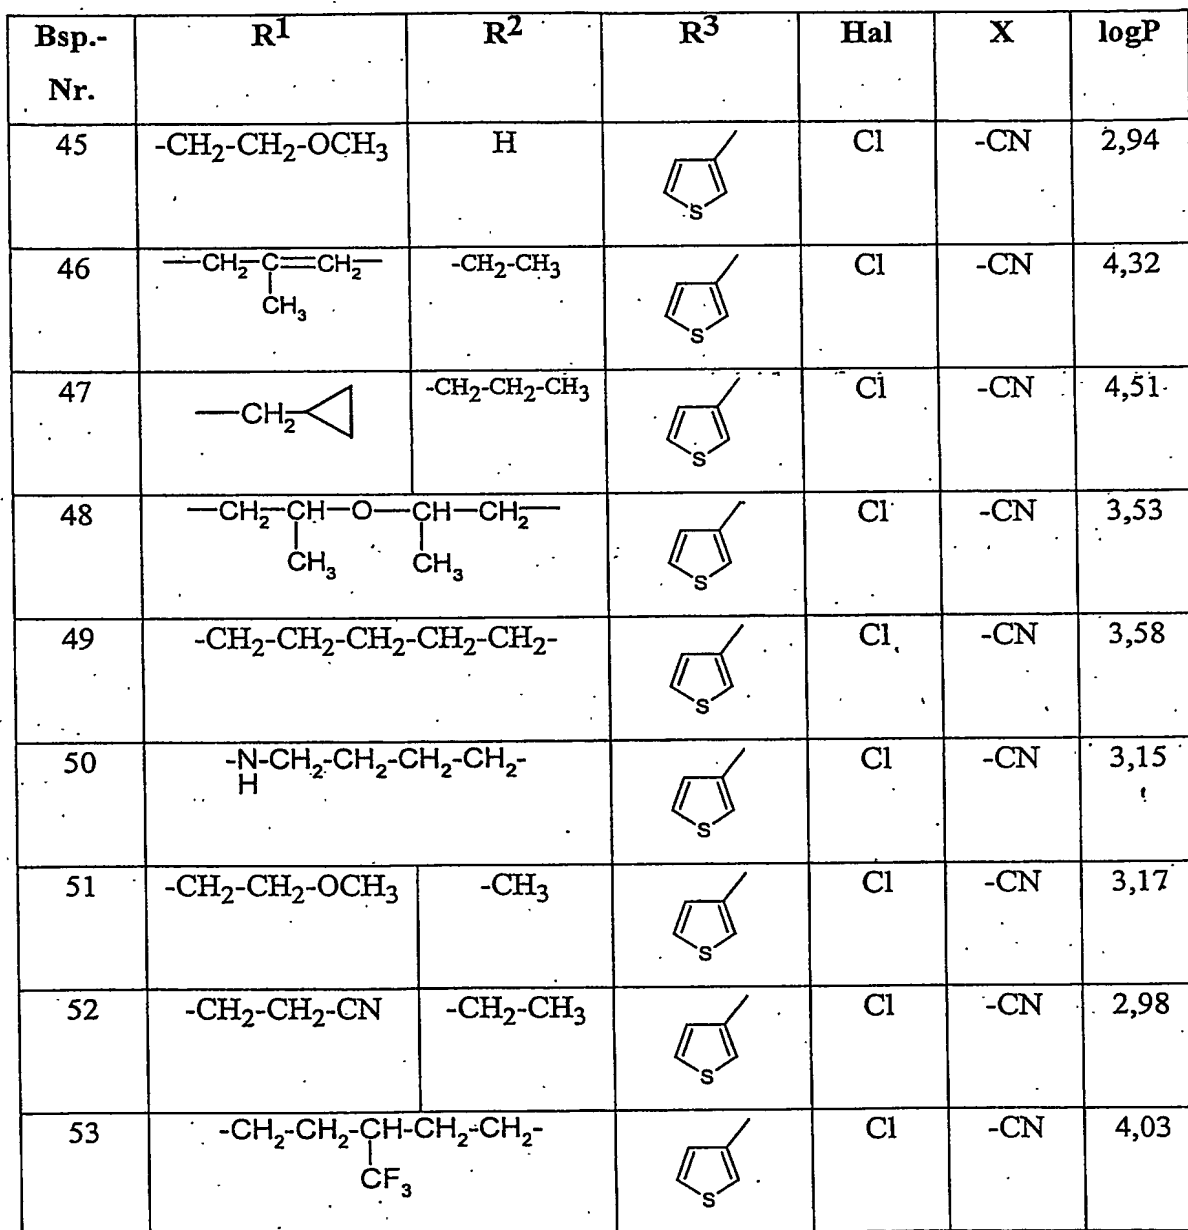 Bsp.-Nr. R¹ R² R³ Hal X logP
45 -CH₂-CH₂-OCH₃ H S Cl -CN 2,94
46 —CH₂—C=CH₂— -CH₂-CH₃ Cl -CN 4,32
CH₃ S
47 —CH₂ -CH₂-CH₂-CH₃ S Cl -CN 4,51
48 —CH₂—CH—O—CH—CH₂— Cl -CN 3,53
CH₃ CH₃ S
49 -CH₂-CH₂-CH₂-CH₂-CH₂- S Cl -CN 3,58
50 -N-CH₂-CH₂-CH₂-CH₂- Cl -CN 3,15
H S
51 -CH₂-CH₂-OCH₃ -CH₃ S Cl -CN 3,17
52 -CH₂-CH₂-CN -CH₂-CH₃ S Cl -CN 2,98
53 -CH₂-CH₂-CH-CH₂-CH₂- Cl -CN 4,03
CF₃ S